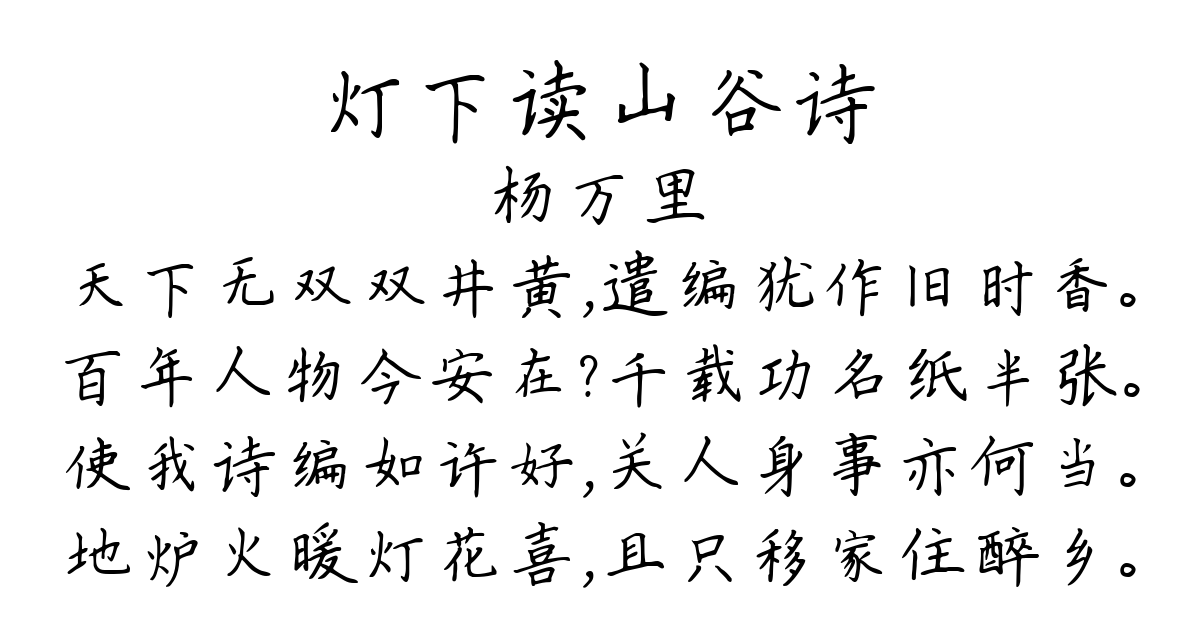 灯下读山谷诗
杨万里
天下无双双井黄,遣编犹作旧时香。
百年人物今安在?千载功名纸半张。
使我诗编如许好,关人身事亦何当。
地炉火暖灯花喜,且只移家住醉乡。